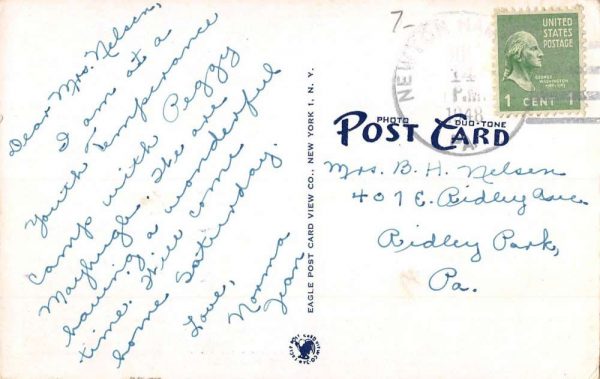 Dear Mrs. Nelsen,
I am at a
Youth Temperance
Camp with Peggy
Mayhugh. The are
having a wonderful
time. Will come
home Saturday.
Love,
Norma
Jean
EAGLE POST CARD VIEW CO., NEW YORK 1, N. Y.
7-
P.M.
1948
PA.
UNITED
STATES
POSTAGE
GEORGE
WASHINGTON
1 CENT 1
PHOTO DUO-TONE
POST CARD
Mrs. B. H. Nelsen
407 E. Ridley Ave.
Ridley Park,
Pa.